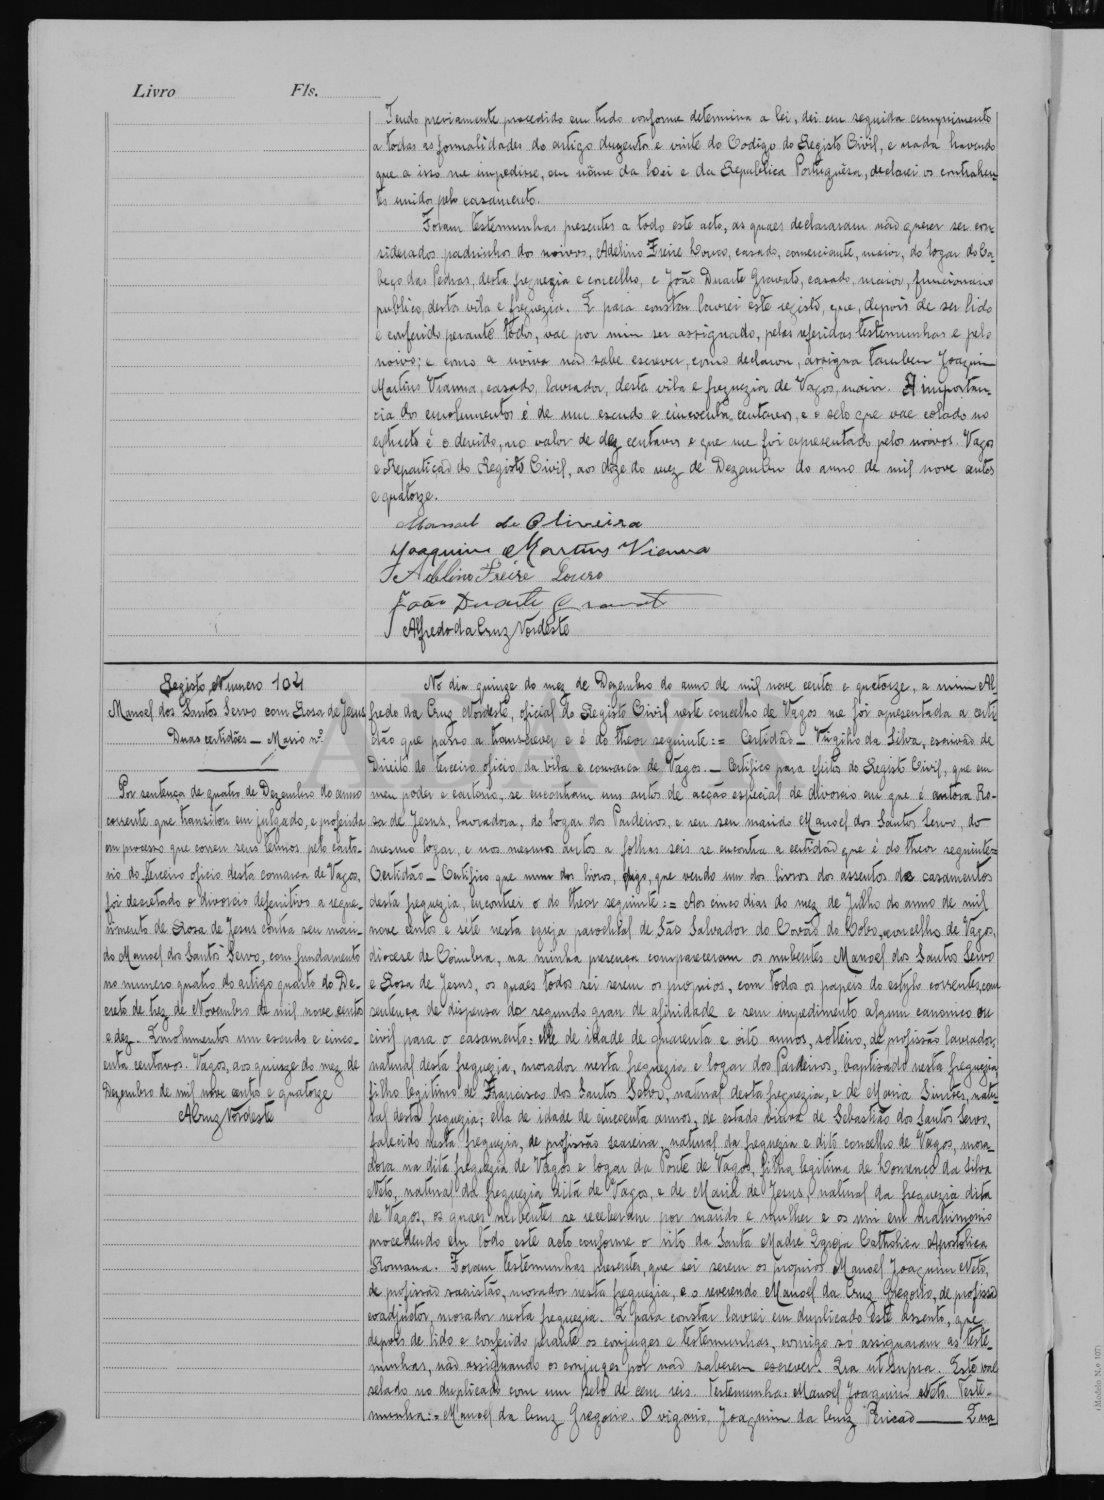 Livro Fls.
Tendo previamente procedido em tudo conforme determina a lei, dei em seguida cumprimento
a todas as formalidades do artigo duzentos e vinte do Codigo do Registo Civil, e nada havendo
que a isso me impedisse, em nôme da Lei e da Republica Portuguêsa, declarei os contrahen-
tes unidos pelo casamento.
Foram testemunhas presentes a todo este acto, as quaes declararam não querer ser con-
siderados padrinhos dos noivos, Adelino Freire Louro, casado, comerciante, maior, do logar do Ca-
beço das Pedras, desta freguezia e concelho, e João Duarte Gravato, casado, maior, funcionario
publico, desta vila e freguezia. E para constar lavrei este registo, que, depois de ser lido
e conferido perante todos, vae por mim ser assignado, pelas referidas testemunhas e pelo
noivo; e como a noiva não sabe escrever, como declarou, assigna tambem Joaquim
Martins Vianna, casado, lavrador, desta vila e freguezia de Vagos, maior. A importan-
cia dos emolumentos é de um escudo e cincoenta centavos, e o selo que vae colado no
extracto é o devido, no valor de dez centavos e que me foi apresentado pelos noivos. Vagos
e Repartição do Registo Civil, aos doze do mez de Dezembro do anno de mil nove centos
e quatorze.
Manoel de Oliveira
Joaquim Martins Vienna
Adelino Freire Louro
João Duarte Gravato
Alfredo da Cruz Nordeste
Registo Numero 104
Manoel dos Santos Servo com Rosa de Jesus
Duas certidões — Maço nº
Por sentença de quatro de Dezembro do anno
corrente que transitou em julgado, e proferida
em processo que correu seus termos pelo carto-
rio do terceiro oficio desta comarca de Vagos,
foi decretado o divorcio defenitivo a reque-
rimento de Rosa de Jesus contra seu mari-
do Manoel dos Santos Servo, com fundamento
no numero quatro do artigo quarto do De-
creto de trez de Novembro de mil nove centos
e dez. Emolumentos um escudo e cinco-
enta centavos. Vagos, aos quinze do mez de
Dezembro de mil nove centos e quatorze
ACruz Nordeste
No dia quinze do mez de Dezembro do anno de mil nove centos e quatorze, a mim Al-
fredo da Cruz Nordeste, oficial do Registo Civil neste concelho de Vagos me foi apresentada a certi
dão que passo a transcrever e é do theor seguinte:= Certidão — Virgilio da Silva, escrivão de
Direito do terceiro oficio da vila e comarca de Vagos. — Certifico para efeitos do Registo Civil, que em
meu poder e cartorio, se encontram uns autos de acção especial de divorcio em que é autora Ro-
sa de Jesus, lavradora, do logar dos Pardeiros, e reu seu marido Manoel dos Santos Servo, do
mesmo logar, e nos mesmos autos a folhas seis se encontra a certidão que é do theor seguinte=
Certidão — Certifico que num dos livros, digo, que vendo um dos livros dos assentos de casamentos
desta freguezia, encontrei o do theor seguinte:= Aos cinco dias do mez de Julho do anno de mil
nove centos e sete nesta egreja parochial de São Salvador do Covão do Lobo, concelho de Vagos,
diocese de Coimbra, na minha presença compareceram os nubentes Manoel dos Santos Servo
e Rosa de Jesus, os quaes todos sei serem os proprios, com todos os papeis do estylo correntes, com
sentença de dispensa do segundo grau de afinidade e sem impedimento algum canonico ou
civil para o casamento: elle de idade de quarenta e oito annos, solteiro, de profissão lavrador,
natural desta freguezia, morador nesta freguezia e logar dos Pardeiros, baptisado nesta freguezia,
filho legitimo de Francisco dos Santos Servo, natural desta freguezia, e de Maria Simões, natu-
ral desta freguezia; ella de idade de cincoenta annos, de estado viuva de Sebastião dos Santos Servo,
falecido nesta freguezia, de profissão seareira, natural da freguezia e dito concelho de Vagos, mora-
dora na dita freguezia de Vagos e logar da Ponte de Vagos, filha legitima de Lourenço da Silva
Neto, natural da freguezia dita de Vagos, e de Maria de Jesus, natural da freguezia dita
de Vagos, os quaes nubentes se receberam por marido e mulher e os uni em matrimonio
procedendo em todo este acto conforme o rito da Santa Madre Egreja Catholica Apostolica
Romana. Foram testemunhas presentes, que sei serem os proprios Manoel Joaquim Neto,
de profissão sacristão, morador nesta freguezia, e o reverendo Manoel da Cruz Gregorio, de profissão
coadjutor, morador nesta freguezia. E para constar lavrei em duplicado este assento, que
depois de lido e conferido perante os conjuges e testemunhas, comigo só assignaram as teste-
munhas, não assignando os conjuges por não saberem escrever. Era ut supra. Este vae
selado no duplicado com um selo de cem reis. Testemunha: Manoel Joaquim Neto. Teste-
munha:= Manoel da Cruz Gregorio. O vigario, Joaquim da Cruz Pericão — E na-
(Modelo N.o 107)